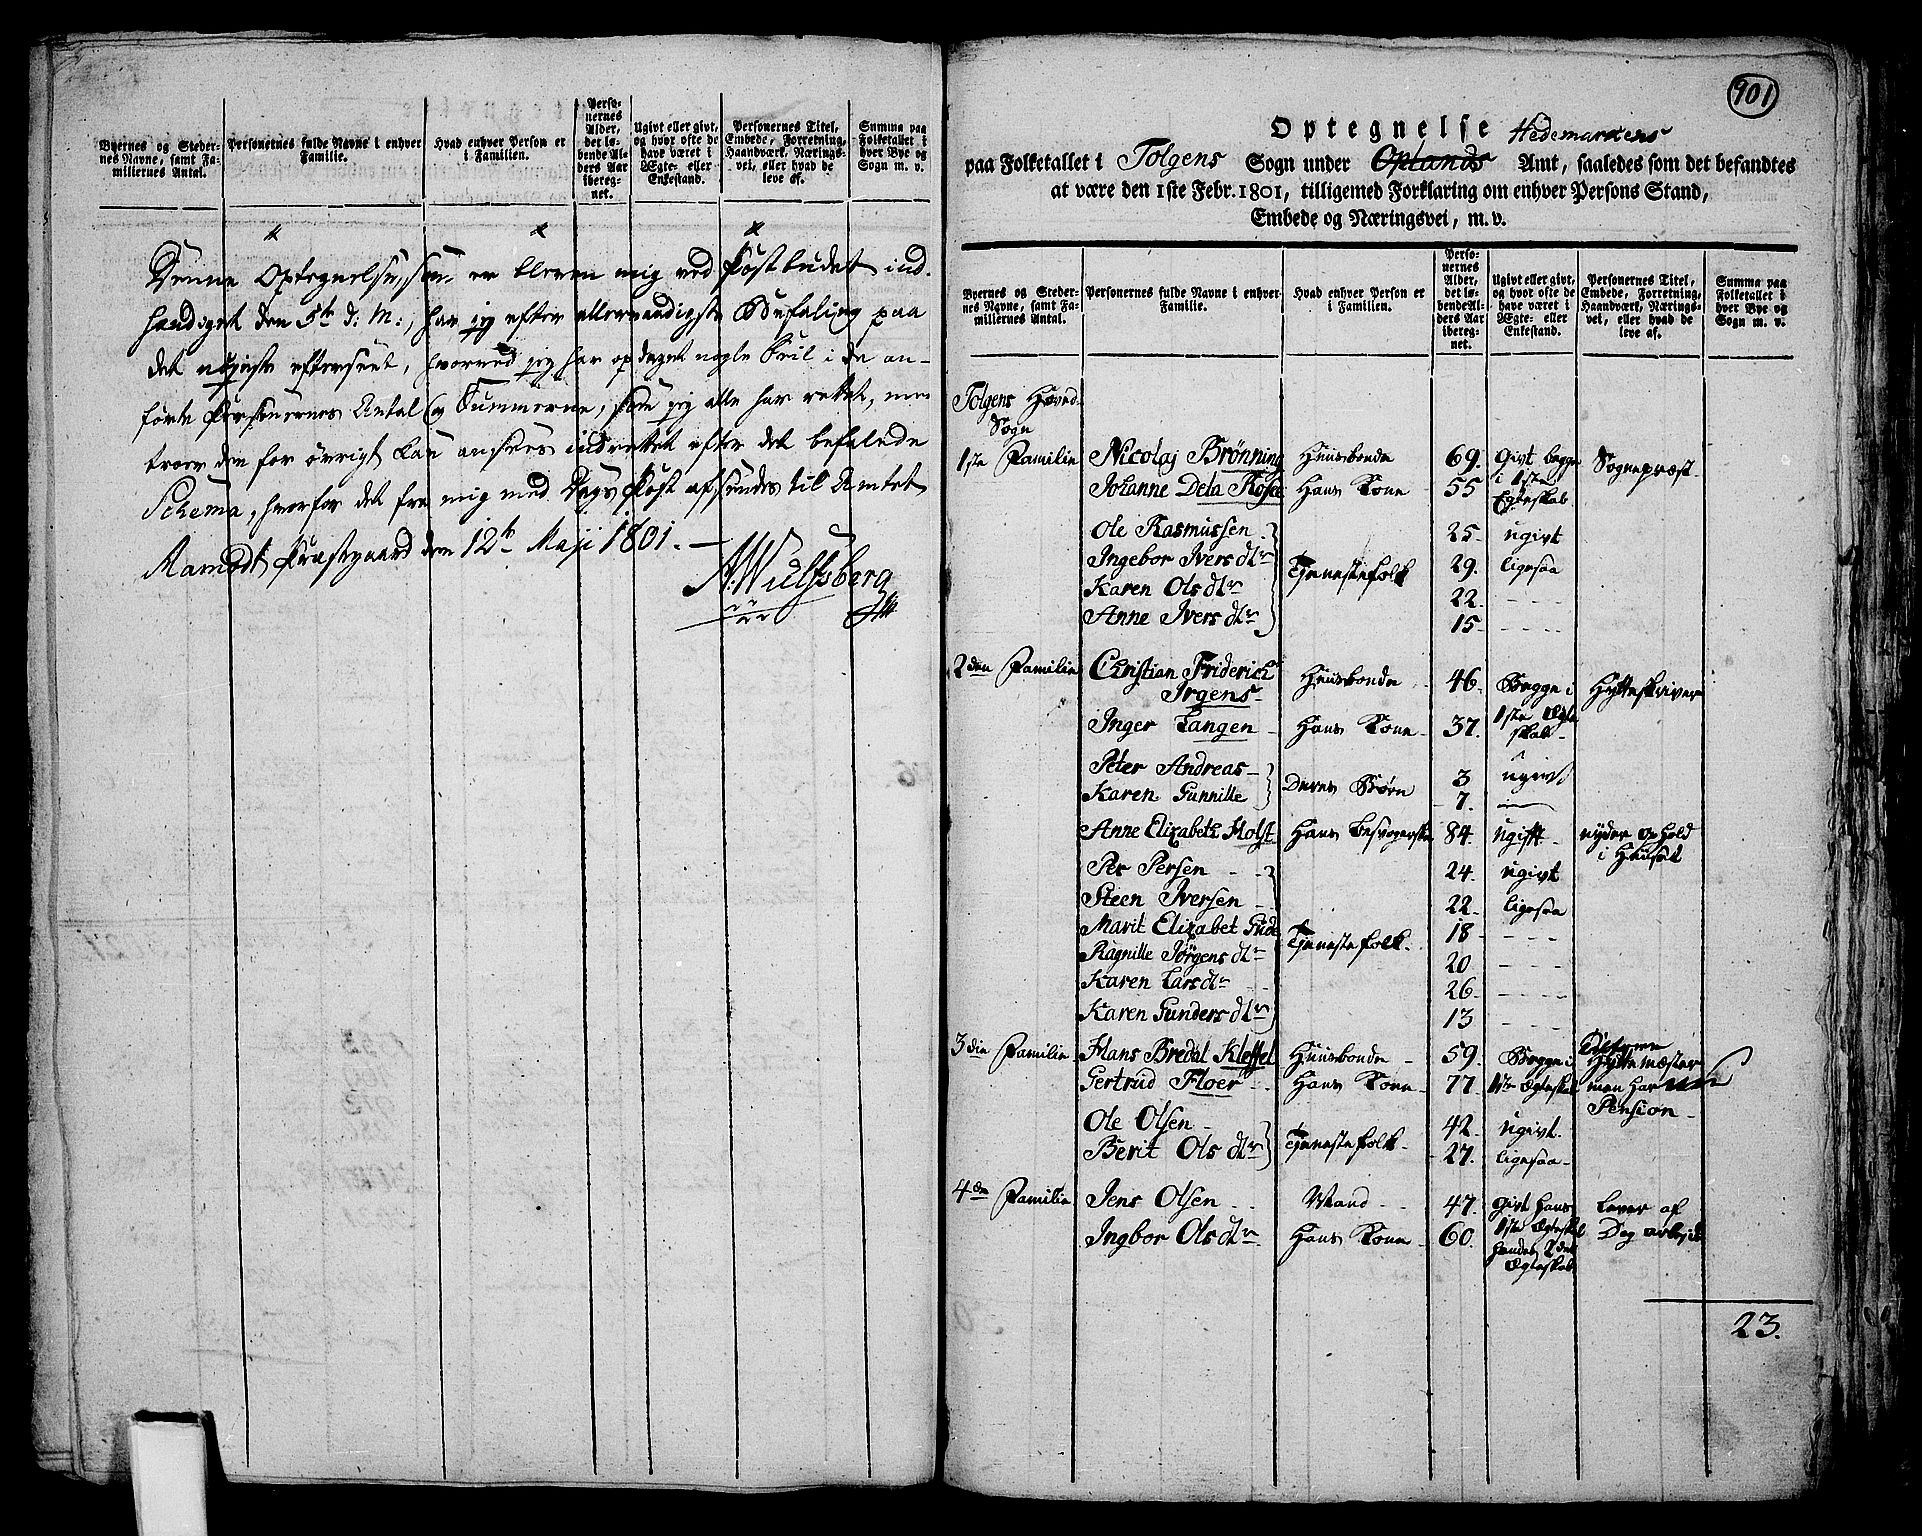 Byernes og Steder-
nes Navne, samt Fa-
miliernes Antal.
Personernes fulde Navne i enhver
Familie.
Hvad enhver Person er
i Familien.
Perso-
nernes
Alder,
det lø-
bende Al-
ders Aar
iberegnet
net.
Ugivt eller givt,
og hvor ofte de
have været i
Ægte- eller
Enkestand.
Personernes Titel,
Embede, Forretning,
Haandværk, Nærings-
vei, eller hvad de
leve af.
Summa paa
Folketallet i
hver Bye og
Sogn m. v.
Denne Optegnelse, som er bleven mig ved Postbudet ind-
hændiget den 5te d: M:, har jeg efter allernaadigste Befaling paa
det nøyeste efterseet, hvorved jeg har opdaget nogle Feil i de an-
førte Personernes Antal og Summerne, som jeg alle har rettet, men
troer den for øvrigt kan ansees indrettet efter det befalede
Schema, hvorfor det fra mig med Dags Post afsendes til Amtet
Aamodt Præstgaard den 12te Maji 1801. —
N. Wulfsberg
901
Optegnelse Hedemarkens
paa Folketallet i Tolgens Sogn under Oplands Amt, saaledes som det befandtes
at være den 1ste Febr. 1801, tilligemed Forklaring om enhver Persons Stand,
Embede og Næringsvei, m. v.
Byernes og Steder-
nes Navne, samt Fa-
miliernes Antal.
Personernes fulde Navne i enhver
Familie.
Hvad enhver Person er
i Familien.
Perso-
nernes
Alder,
det lø-
bende Al-
ders Aar
ibereg-
net.
Ugivt eller givt,
og hvor ofte de
have været i
Ægte- eller
Enkestand.
Personernes Titel,
Embede, Forretning,
Haandværk, Nærings-
vei, eller hvad de
leve af.
Summa paa
Folketallet i
hver Bye og
Sogn m. v.
Tolgens Hoved-
Sogn
1ste Familie Nicolaj Brønning Huusbonde 69. Givt begge Sognepræst.
Johanne Dela Kose Hans Kone 55 i 1ste Egteskab
Ole Rasmussen 25. ugivt
Ingebor Ivers dtr 29. ligesaa
Karen Ols dtr Tjenestefolk 22. - - -
Anne Ivers dtr 15. - - -
2den Familie Christian Friderich
Irgens Huusbonde 46. Begge i Hytteskriver
Inger Langen Hans Kone 37. 1ste Ægte
skab
Peter Andreas 3 ugivt
Karen Gunnille Deres Børn 7. —
Anne Elizabeth Holst Hans Besvogerske 84. ugift nyder ophold
i Huuset
Per Persen 24. ugivt
Steen Iversen 22. ligesaa
Marit Elizabet Gude Tjenestefolk 18 - - -
Ragnille Jørgens dtr 20 - - -
Karen Lars dtr 26. - - -
Karen Gunders dtr 13 - - -
3die Familie Hans Bredal Kleffel Huusbonde 59. Begge i Hyttemæster
Gertrud Floer Hans Kone 77. 1ste Ægteskab men har
Pension
Ole Olsen 42. ugivt.
Berit Ols dtr Tjenestefolk 27. ligesaa
4de Familie Jens Olsen Mand 47. Givt hans Lever af
Ingbor Ols dtr Hans Kone 60. 1ste Ægteskab Dag arbejde
hendes 2det
Ægteskab
23.